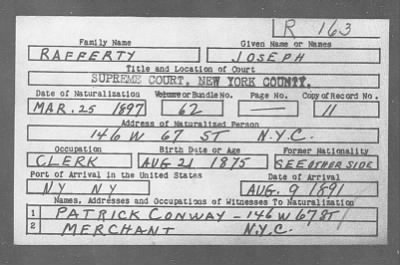 R 163
Family Name Given Name or Names
RAFFERTY JOSEPH
Title and Location of Court
SUPREME COURT, NEW YORK COUNTY.
Date of Naturalization Volume or Bundle No. Page No. Copy of Record No.
MAR. 25 1897 62 — 11
Address of Naturalized Person
146 W 67 ST N.Y.C.
Occupation Birth Date or Age Former Nationality
CLERK AUG 21 1875 SEE OTHER SIDE
Port of Arrival in the United States Date of Arrival
NY NY AUG. 9 1891
Names, Addresses and Occupations of Witnesses To Naturalization
1 PATRICK CONWAY - 146 W 67 ST
2 MERCHANT N.Y.C.